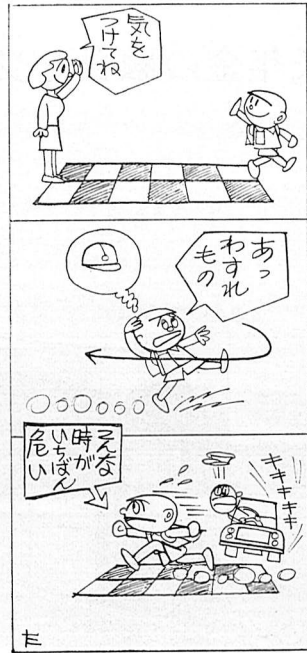 気を
つけてね
あっ
わすれ
もの
そんな
時が
いちばん
危い
キキキキキ